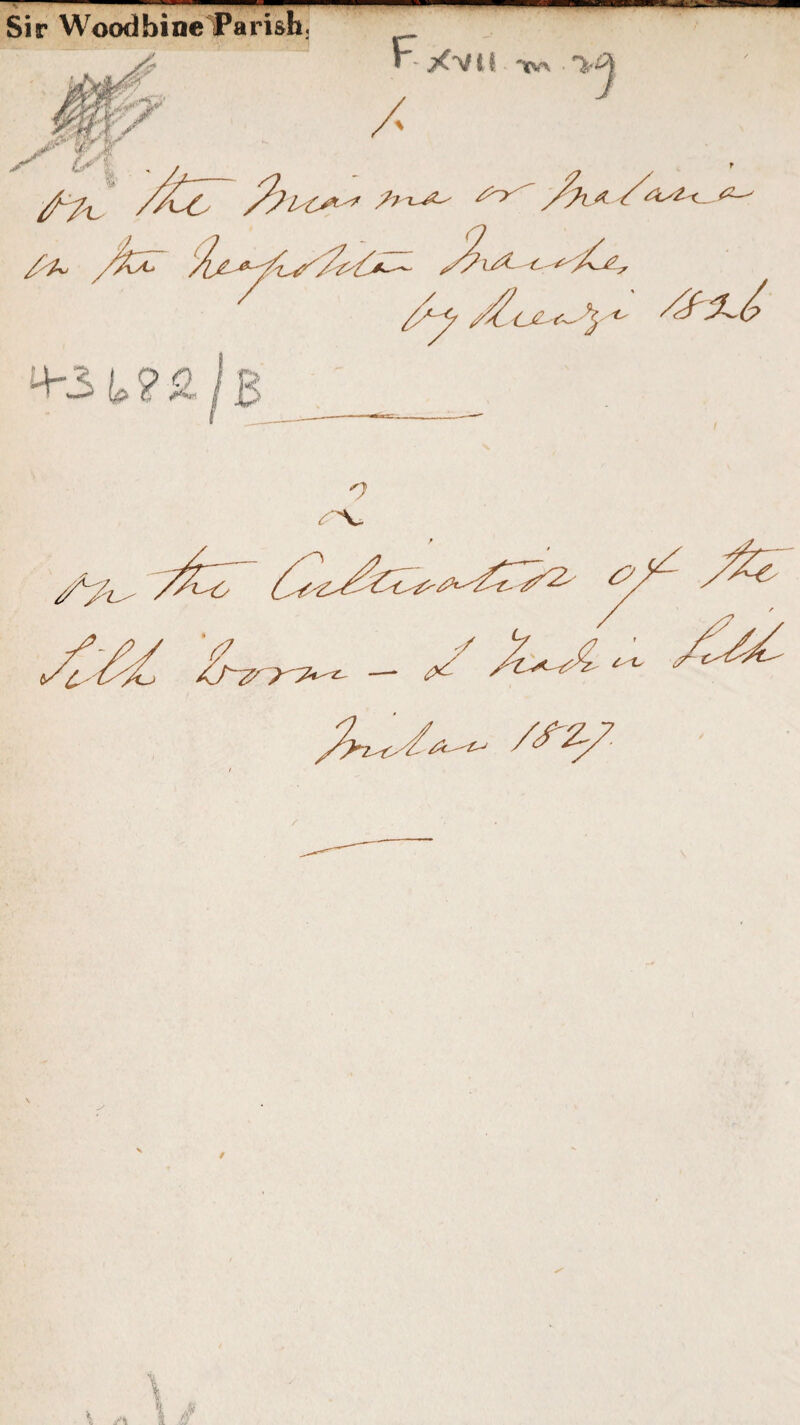 Sir Woodbine Parish.
F. XVII m 29
1
On the Miasma or Malaria
in the Neapolitan Marshes,
by 1826
43682/B
2
On the Cultivation of the
Silk Worm — & Trade in Silk
Milan 1827.